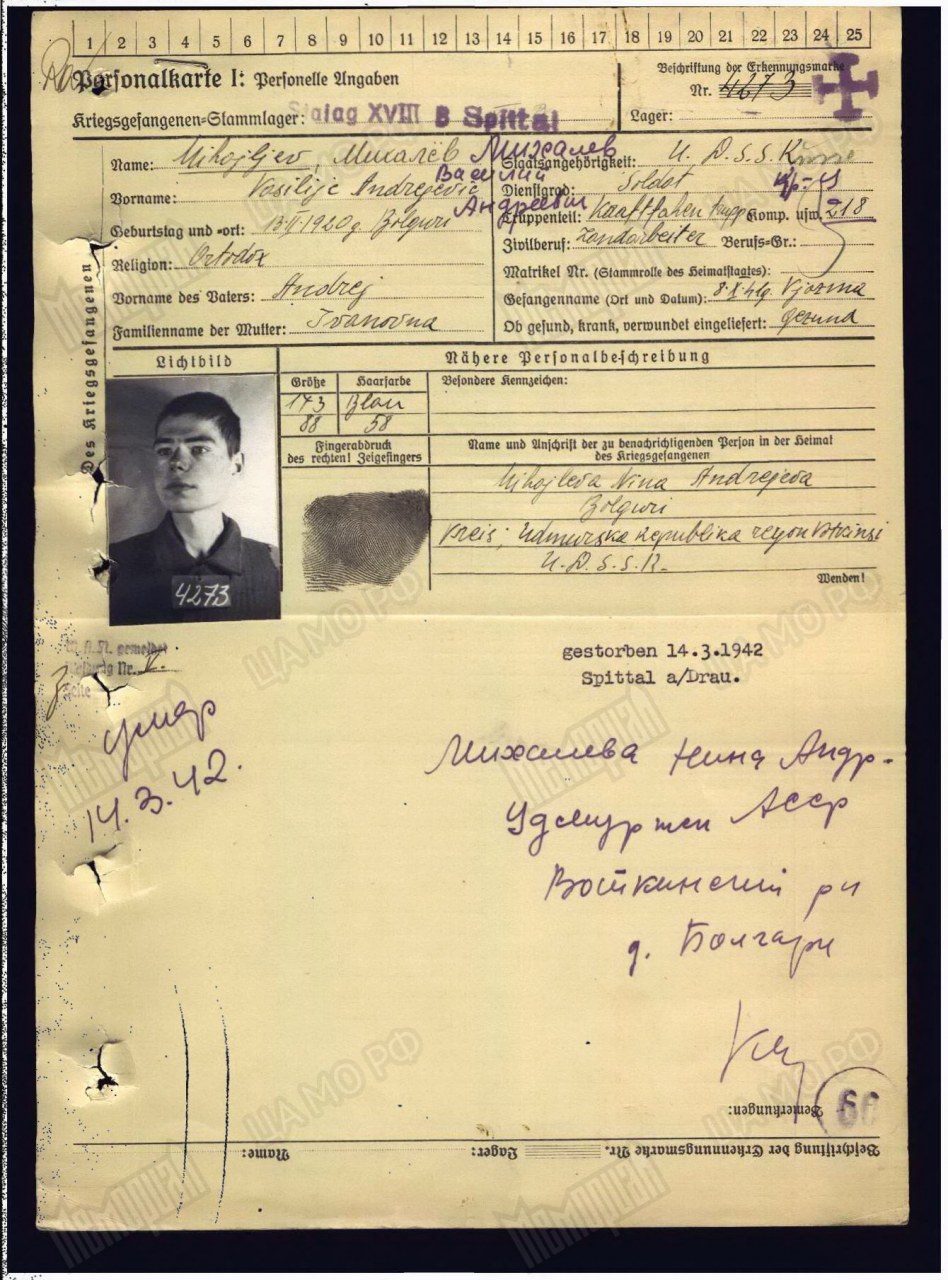 1 2 3 4 5 6 7 8 9 10 11 12 13 14 15 16 17 18 19 20 21 22 23 24 25
Personalkarte I: Personelle Angaben
Beschriftung der Erkennungsmarke
Nr. 4273
Kriegsgefangenen-Stammlager: Stalag XVIII B Spittal
Lager:
Des Kriegsgefangenen
Name: Mihajljev, Михалёв Михалев
Staatsangehörigkeit: U. D. S. S. Russe
Василий
Vorname: Vasilije Andrejevic
Андреевич
Dienstgrad: Soldat
Truppenteil: Komp. usw. 218
Geburtstag und -ort: 13.II.1920g. Bolguri
Zivilberuf: Landarbeiter Berufs-Gr.:
Religion: Ortodox
Matrikel Nr. (Stammrolle des Heimatstaates):
Vorname des Vaters: Andrej
Gefangenname (Ort und Datum): 8.X.41g. Vjazma
Familienname der Mutter: Ivanovna
Ob gesund, krank, verwundet eingeliefert: gesund
Lichtbild
Nähere Personalbeschreibung
Größe Haarfarbe Besondere Kennzeichen:
173
88 58
Fingerabdruck
des rechten! Zeigefingers
Name und Anschrift der zu benachrichtigenden Person in der Heimat
des Kriegsgefangenen
Mihajleva Nina Andrejeva
Bolguri
Kreis; Udmurska republika reyon
U. D. S. S. R.
Wenden!
4273
gemeldet
Nr. V.
gestorben 14.3.1942
Spittal a/Drau.
умер
14.3.42.
Михалева Нина Андр.
Удмуртск АССР
Воткинский рн
д. Болгари
66
Bemerkungen:
Beschriftung der Erkennungsmarke Nr. Lager: Name:
ЦАМО РФ
Мемориал